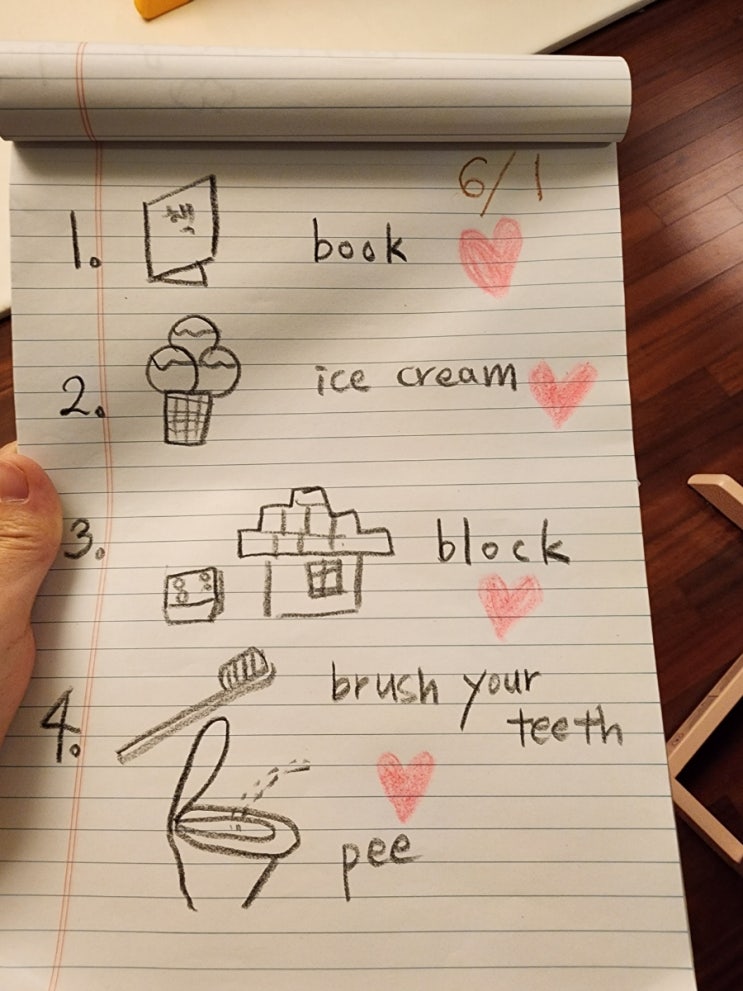 6/1
1. 책 book
2. ice cream
3. block
4. brush your
teeth
pee